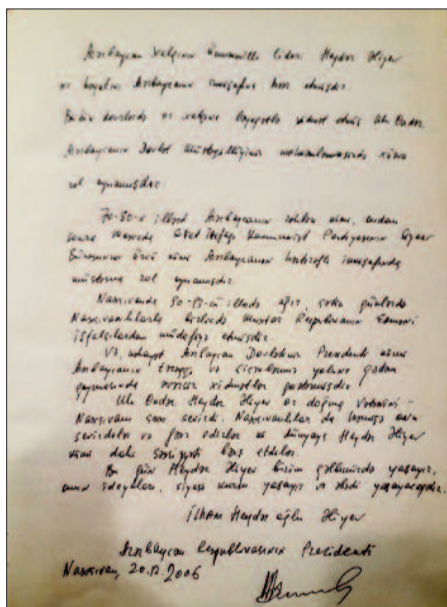 Azərbaycan xalqının Ümummilli lideri Heydər Əliyev
öz həyatını Azərbaycanın inkişafına həsr etmişdir.
Bütün dövrlərdə öz xalqına ləyaqətlə xidmət etmiş Ulu Öndər
Azərbaycanın Dövlət Müstəqilliyinin möhkəmlənməsində
rol oynamışdır.
70-80-ci illərdə Azərbaycanın rəhbəri kimi, ondan
sonra Moskvada Sovet İttifaqı Kommunist Partiyasının Siyasi
Bürosunun üzvü kimi Azərbaycanın hərtərəfli inkişafında
müstəsna rol oynamışdır.
Naxçıvanda 90-93-cü illərdə ağır, çətin günlərdə
Naxçıvanlılarla birlikdə Muxtar Respublikanı Erməni
işğalçılardan müdafiə etmişdir.
Və, nəhayət Azərbaycan Dövlətinin Prezidenti kimi
Azərbaycanın və yolunu qədəm
xidmətlər göstərmişdir.
Ulu Öndər Heydər Əliyev öz doğma Vətənini -
Naxçıvanı çox sevirdi. Naxçıvanlılar da həmişə onu
sevirdilər və edirdilər və dünyaya Heydər Əliyev
kimi dahi şəxsiyyəti bəxş etdilər.
Bu gün Heydər Əliyev bizim qəlbimizdə yaşayır,
onun ideyaları, siyasi kursu yaşayır və əbədi yaşayacaqdır.
İlham Heydər oğlu Əliyev
Azərbaycan Respublikasının Prezidenti
Naxçıvan, 20.12.2006